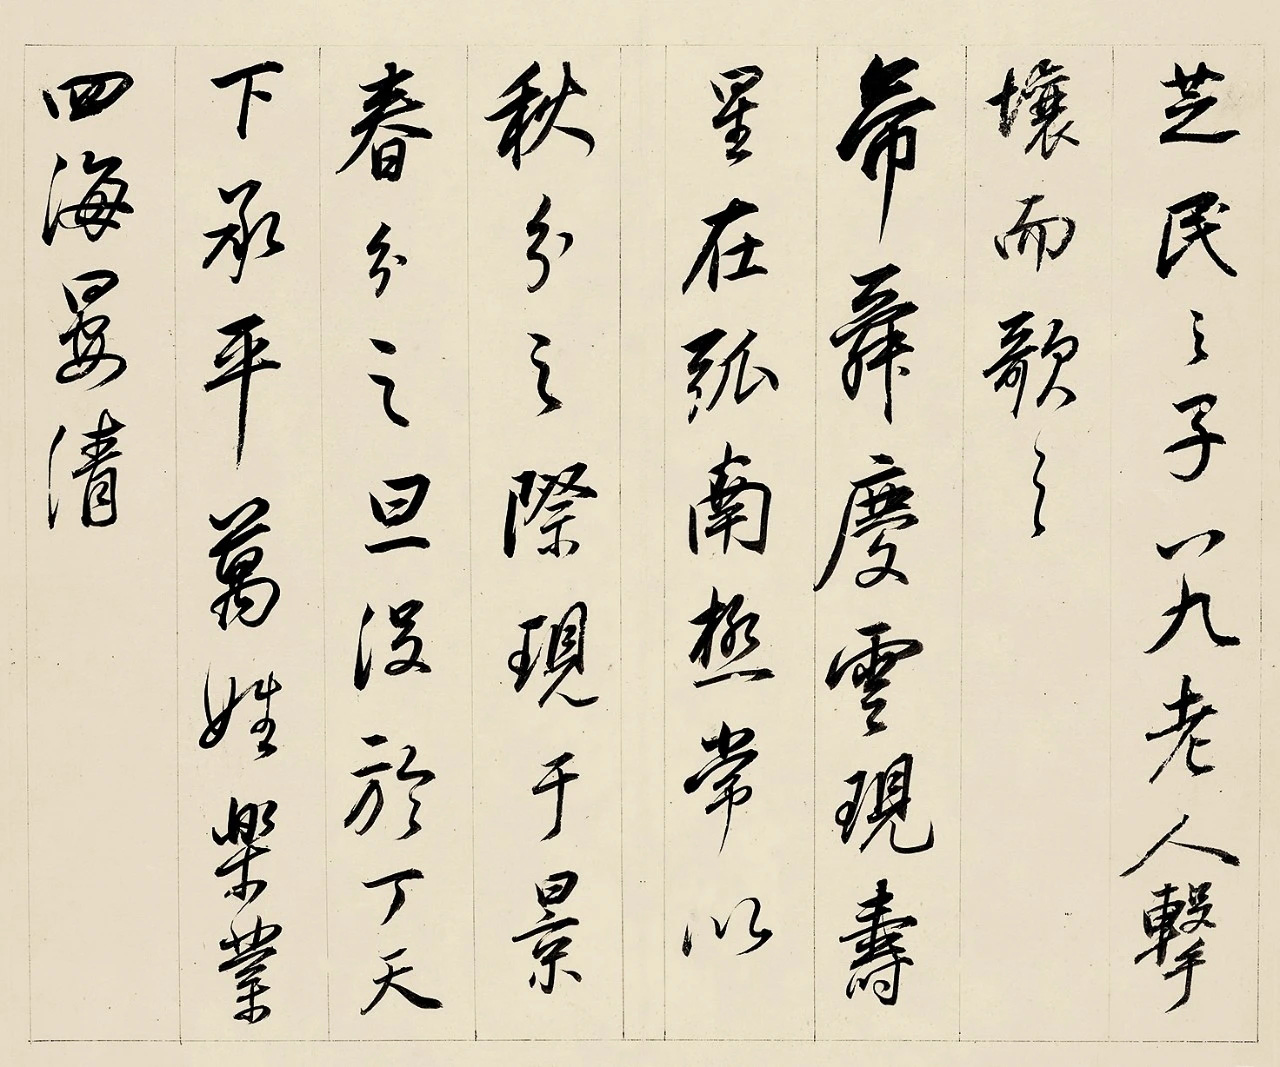 芝民之子八九老人擊
壤而歌之
帝舜慶雲現壽
星在弧南極常以
秋分之際現于景
春分之旦沒於丁天
下承平萬姓樂業
四海晏清